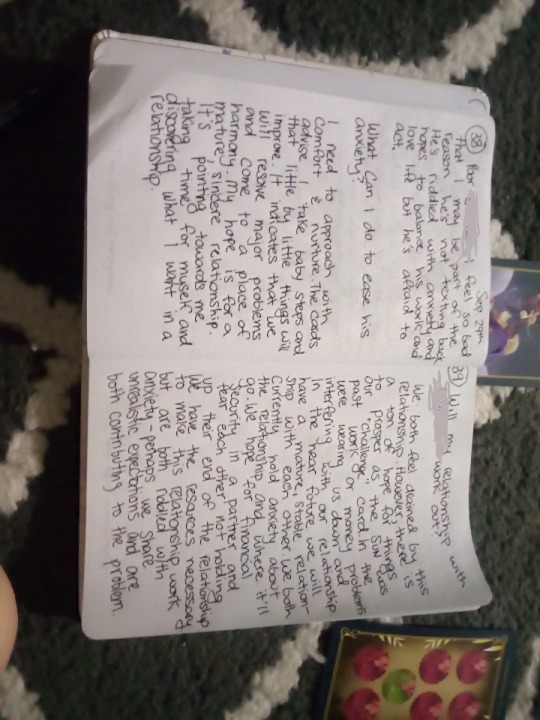 Sep 29th
38 Poor I feel so bad
that I may be part of the
reason he's not texting back
He's riddled with anxiety and
hopes to balance his work and
love life but he's afraid to
act.
What can I do to ease his
anxiety?
I need to approach with
comfort & nurture. The cards
advise I take baby steps and
that little by little things will
improve. It indicates that we
will resolve major problems
and come to a place of
harmony. My hope is for a
mature, sincere relationship.
It's pointing towards me
taking time for muself and
discovering what I want in a
relationship.
39 Will my relationship with
work out?
We both feel drained by this
relationship. However, there is
a ton of hope for things
to prosper as the sun was
our "challenge" card. In the
past work or money problems
were wearing us down and
interfering with our relationship
In the near future we will
have a mature, stable relation-
ship with each other. We both
currently hold anxiety about
the relationship, and where it'll
go. We hope for financial
security in a partner and
fear each other not holding
up their end of the relationship
We have the resources necessary
to make this relationship work
but are both riddled with
anxiety - perhaps we share
unrealistic expectations and are
both contributing to the problem.